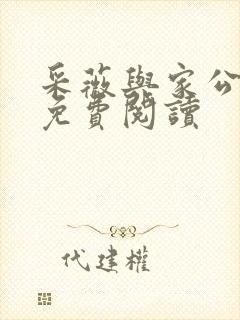 采薇與家公
免費閱讀
代建權